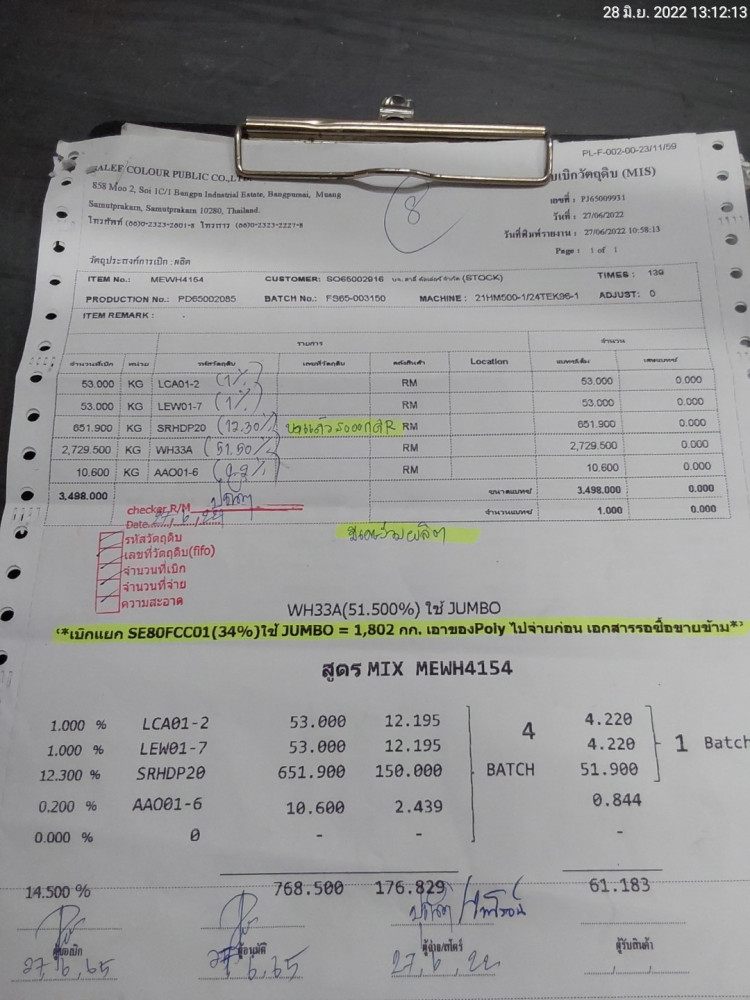 28 มิ.ย. 2022 13:12:13
PL-F-002-00-23/11/59
COLOUR PUBLIC CO.,
858 Moo 2, Soi 1C/1 Bangpu Industrial Estate, Bangpumai, Muang
Samutprakarn, Samutprakarn 10280, Thailand.
โทรศัพท์ (66)0-2323-2601-8 โทรสาร (66)0-2323-2227-8
8
บเบิกวัตถุดิบ (MIS)
เลขที่ : PJ65009931
วันที่ : 27/06/2022
วันที่พิมพ์รายงาน : 27/06/2022 10:58:13
Page : 1 of 1
วัตถุประสงค์การเบิก : ผลิต
ITEM No.: MEWH4154 CUSTOMER: SO65002916 (STOCK) TIMES : 139
PRODUCTION No.: PD65002085 BATCH No.: FS65-003150 MACHINE : 21HM500-1/24TEK96-1 ADJUST: 0
ITEM REMARK :
รายการ จำนวน
จำนวนที่เบิก หน่วย รหัสวัตถุดิบ เลขที่วัตถุดิบ คลังสินค้า Location
53.000 KG LCA01-2 (1%) RM 53.000 0.000
53.000 KG LEW01-7 (1%) RM 53.000 0.000
651.900 KG SRHDP20 (12.30%) RM 651.900 0.000
2,729.500 KG WH33A (51.50%) RM 2,729.500 0.000
10.600 KG AAO01-6 RM 10.600 0.000
3,498.000 ขนาดแบทซ์ 3,498.000 0.000
จำนวนแบทซ์ 1.000 0.000
checker R/M
Date 27/6/22
รหัสวัตถุดิบ
เลขที่วัตถุดิบ(fifo)
จำนวนที่เบิก
จำนวนที่จ่าย
ความสะอาด
WH33A(51.500%) ใช้ JUMBO
*เบิกแยก SE80FCC01(34%)ใช้ JUMBO = 1,802 กก. เอาของPoly ไปจ่ายก่อน เอกสารรอซื้อขายข้าม*
สูตร MIX MEWH4154
1.000 % LCA01-2 53.000 12.195 4.220
1.000 % LEW01-7 53.000 12.195 4 4.220 1 Batch
12.300 % SRHDP20 651.900 150.000 BATCH 51.900
0.200 % AAO01-6 10.600 2.439 0.844
0.000 % 0 - - -
14.500 % 768.500 176.829 61.183
ผู้ขอเบิก ผู้อนุมัติ ผู้จ่าย/สโตร์ ผู้รับสินค้า
27/6/65 27/6/65 27/6/22